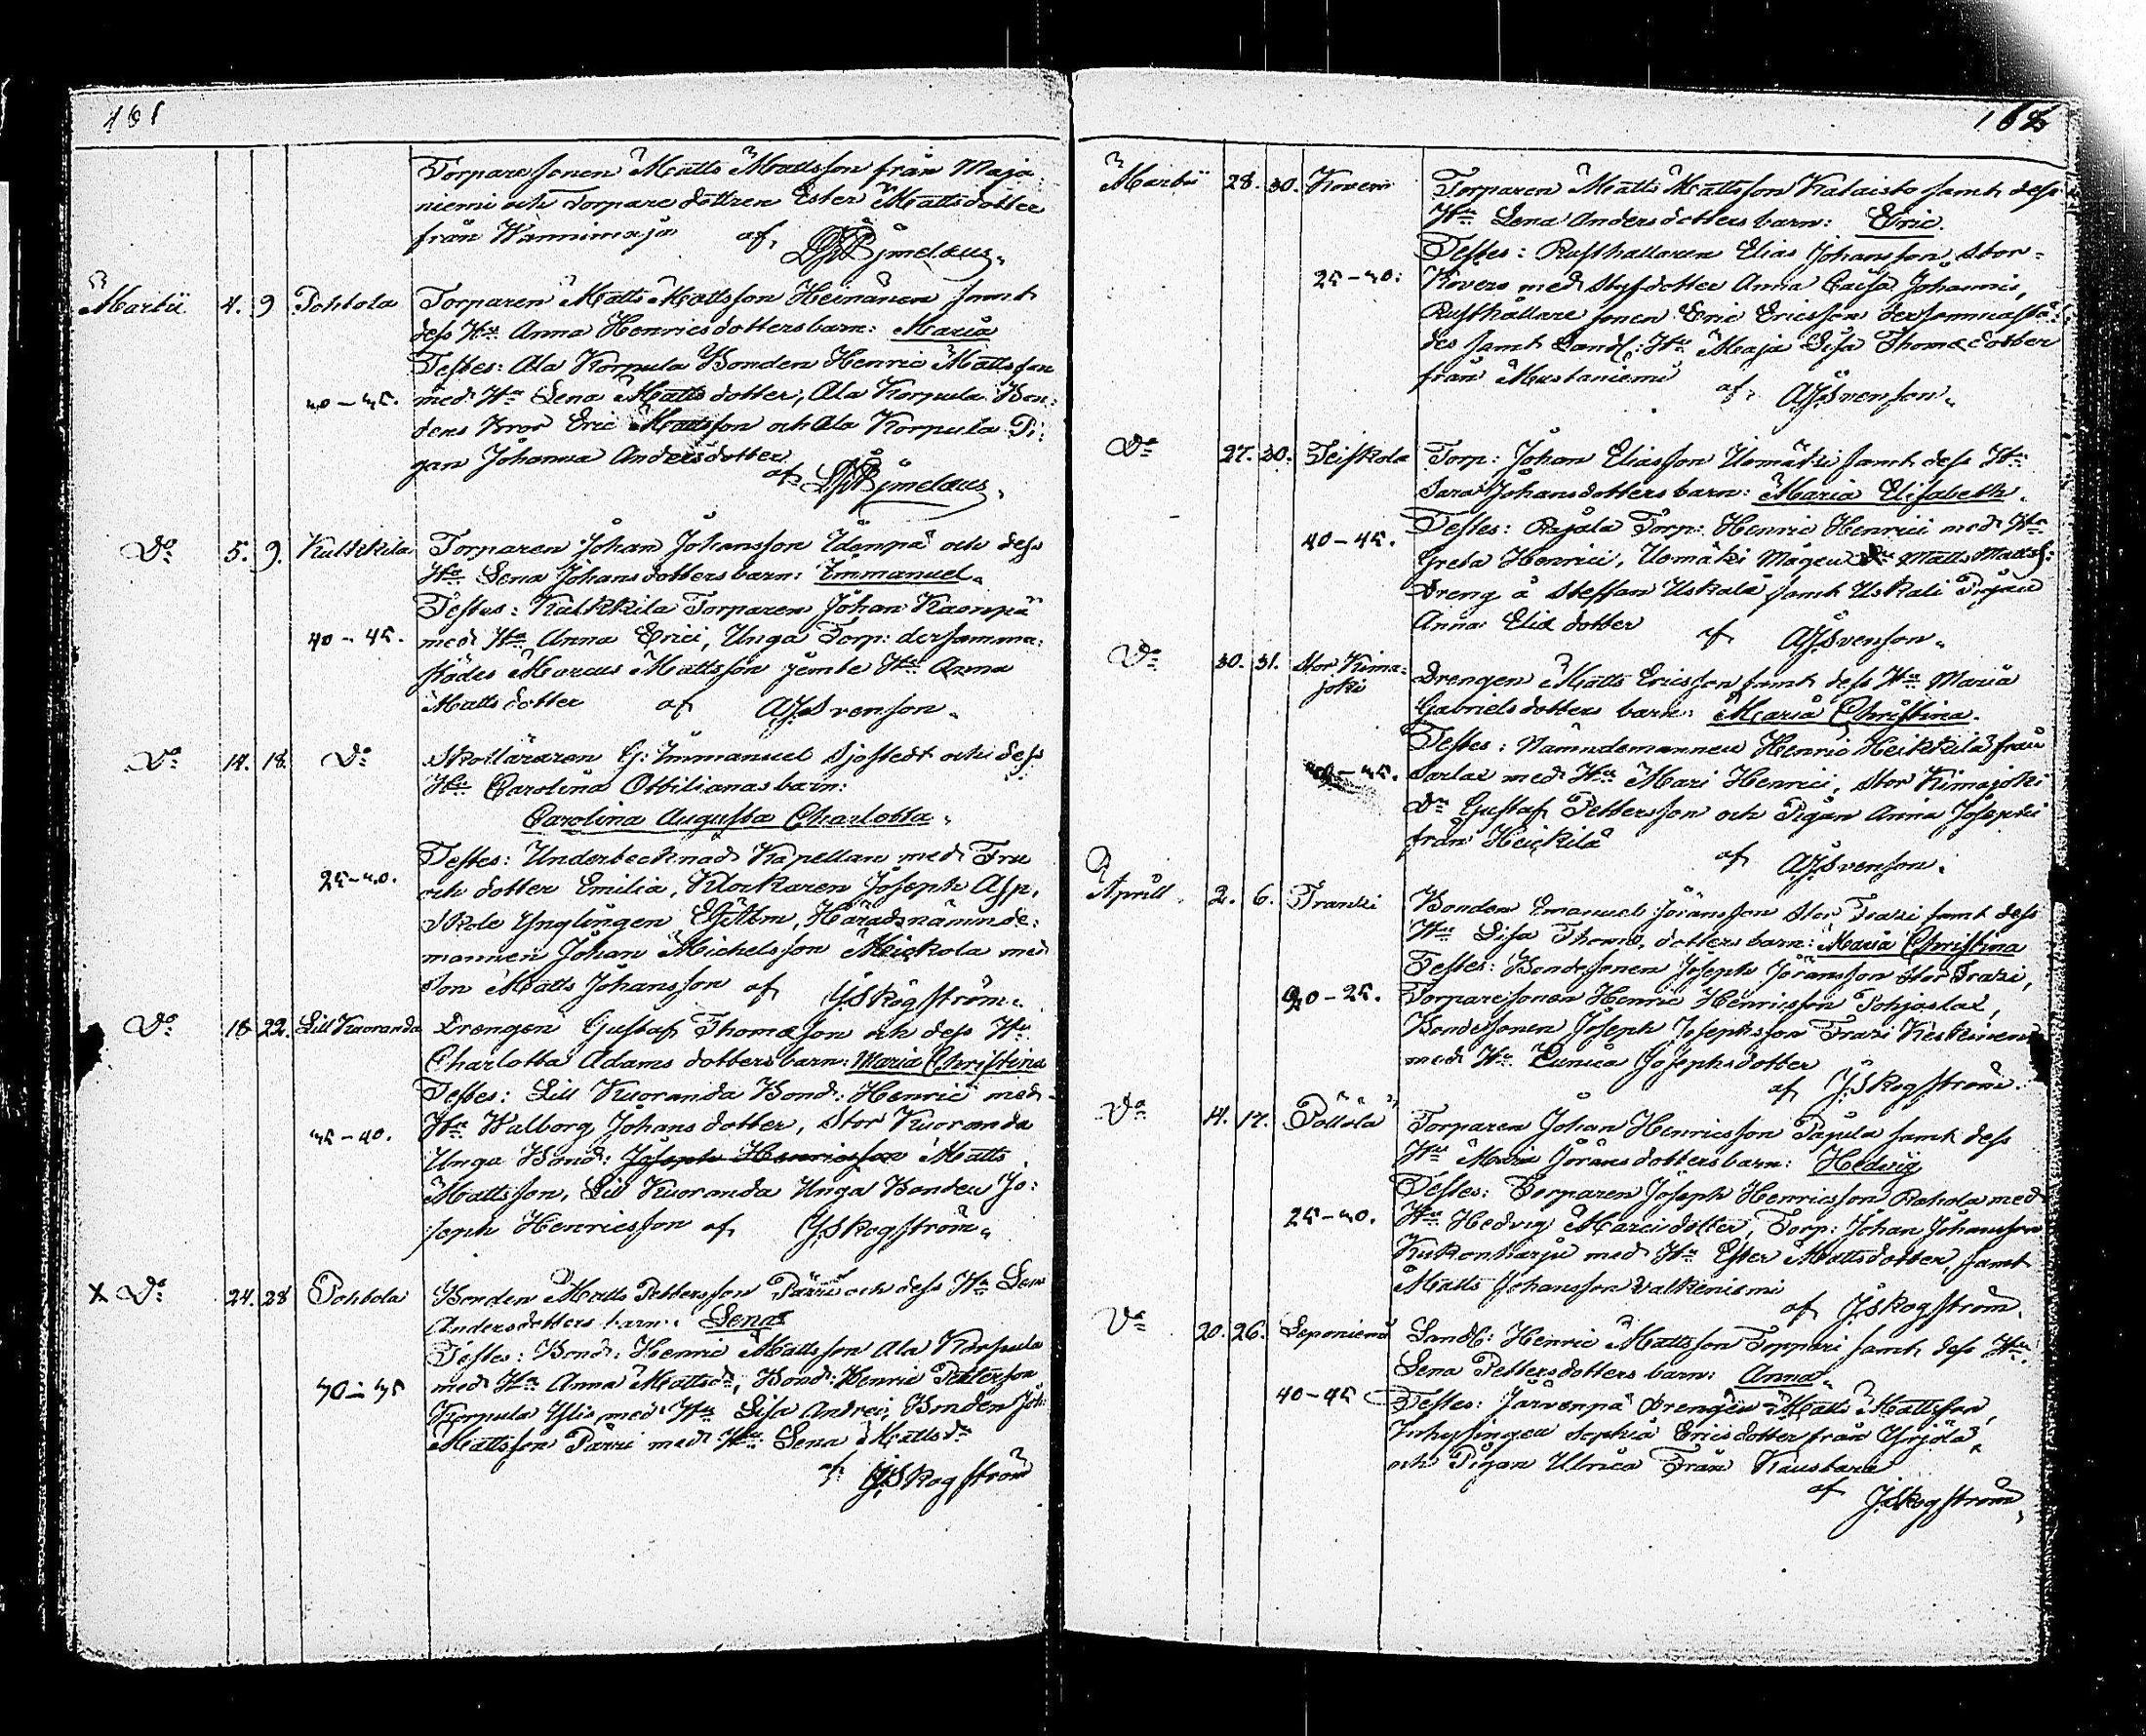 161
Torpare sonen Matts Mattsson från Maja
niemi och Torpare dottren Ester Mattsdotter
från Wannimaja af
Martii 4. 9 Pohtola Torparen Matts Mattsson Heinänen samt
dess Hu Anna Henricsdotters barn: Maria
Testes: Ala Korpula Bonden Henric Mattsson
med Hu Lena Mattsdotter, Ala Korpula Bon:
dens Bror Eric Mattsson och Ala Korpula Pi:
gan Johanna Andersdotter
af
Do 5. 9. Kulkkila Torparen Johan Johansson och dess
Hu Lena Johansdotters barn: Emmanuel
Testes: Kulkkila Torparen Johan
40-45. med Hu Anna Erici, Unga Torp: dersamma:
städes Marcus Mattsson jemte Hu Anna
Mattsdotter af AJSvenson.
Do 14. 18. Do Skolläraren G: Immanuel Sjöstedt och dess
Hu Carolina Ottilianas barn:
Carolina Augusta Charlotta
Testes: Undertecknad Kapellan med Fru
25-40. och dotter Emilia, Klockaren Joseph Asp,
Skole Ynglingen Häradsnämnde:
mannen Johan Michelsson Meiskola med
Son Matts Johansson af JSkogström.
Do 18 22. Lill Kuoranda Drengen Gustaf Thomasson och dess Hu
Charlotta Adamsdotters barn: Maria Christina
Testes: Lill Kuoranda Bond: Henric med
35-40. Hu Walborg Johansdotter, Stor Kuoranda
Unga Bond: Joseph Henricsson Matts
Mattsson, Lill Kuoranda Unga Bonden Jo:
seph Henricsson af JSkogström.
X Do 24. 28 Pohtola Bonden Matts Pettersson Pärri och dess Hu Lena
Andersdotters barn: Lena
Testes: Bond: Henric Mattsson Ala Korpula
med Hu Anna Mattsdr, Bond: Henric Petterson
Korpula med Hu Lisa Andrei, Bonden Joh:
Mattsson Pärri med Hu Lena Mattsdr
af JSkogström
162
Martii 28. 30. Kovero Torparen Matts Mattsson Kataisto samt dess
Hu Lena Andersdotters barn: Eric.
Testes: Rusthållaren Elias Johansson Stor=
Kovero med Styfdotter Anna Caisa Johannis,
Rusthållare sonen Eric Ericsson dersammastä:
des samt Landb: Hu Maja Lisa Thomædotter
från Mustaniemi af AJSvenson.
Do 27. 30. Teiskola Torp: Johan Eliasson Uomäki samt dess Hu
Sara Johansdotters barn: Maria Elisabeth.
Testes: Torp: Henric Henrici med Hu
40-45. Greta Henrici, Uomäki Magen Matts Matts:
Dreng å Steffan Uskala samt Uskali Pigan
Anna Eliædotter af AJSvenson.
Do 30. 31. Stor Kima=
joki Drengen Matts Ericsson samt dess Hu Maria
Gabrielsdotters barn: Maria Christina.
Testes: Nämndemannen Henric Heikkilä från
Sarlax med Hu Mari Henrici, Stor Kimajoki
Dr Gustaf Pettersson och Pigan Anna Josephi
från Heickilä af AJSvenson.
Aprill. 2. 6. Frantsi Bonden Emanuel Göransson Stor Frasi samt dess
Hu Lisa Thomædotters barn: Maria Christina
Testes: Bondesonen Joseph Göransson Stor Frasi,
20-25. Torparesonen Henric Henricsson Pohjoslax,
Bondesonen Joseph Josephsson Frasi
med Hu Eunica Josephsdotter
af JSkogström.
Do 14. 17. Pöllölä Torparen Johan Henricsson Papula samt dess
Hu Maria Göransdotters barn: Hedvig
Testes: Torparen Joseph Henricsson Rahola med
25-40. Hu Hedvig Marcidotter, Torp: Johan Johansson
Kukonharju med Hu Ester Mattsdotter, samt
Matts Johansson Valkeniemi
af JSkogström.
Do 20. 26. Leponiemi Landb: Henric Mattsson Toppari samt dess Hu
Lena Pettersdotters barn: Anna.
40-45 Testes: Järvenpä Drengen Matts Mattsson,
Inhysingen Sophia Ericsdotter från Yrjölä,
och Pigan Ulrica från
af JSkogström,